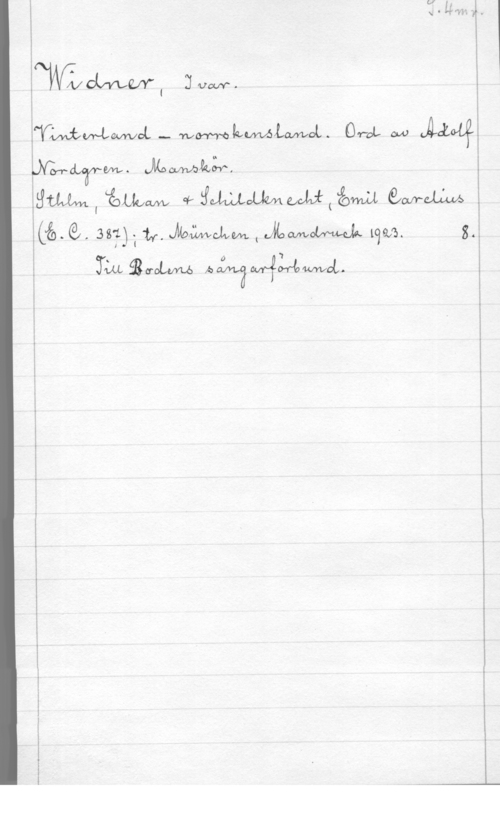 J. 4 mx.
Widner, Ivar.
Vinterland - norrskensland. Ord av Adolf
Nordgren. Manskör.
Sthlm, Elkan & Schildknecht, Emil Carelius
(E.C. 387); tr. München, Mandruck 1923. 8.
Till Bodens sångarförbund.